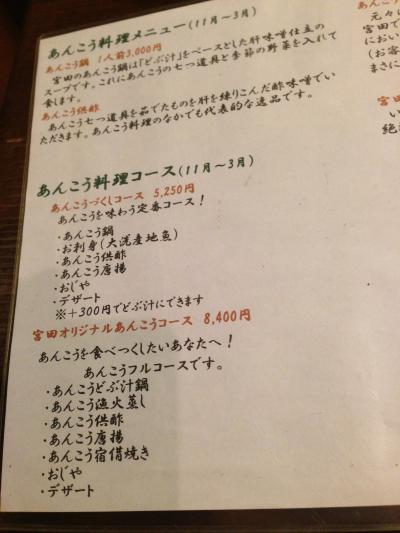 あんこう料理メニュー(11月～3月)
あんこう鍋 1人前3,000円
宮田のあんこう鍋は「どぶ汁」をベースとした肝味噌仕立の
スープです。これにあんこうの七つ道具と季節の野菜を入れて
食します。
あんこう供酢
あんこう七つ道具を茹でたものを肝を練りこんだ酢味噌でい
ただきます。あんこう料理のなかでも代表的な逸品です。
あんこう料理コース(11月～3月)
あんこうづくしコース 5,250円
あんこうを味わう定番コース！
・あんこう鍋
・お刺身(大洗産地魚)
・あんこう供酢
・あんこう唐揚
・おじや
・デザート
※＋300円でどぶ汁にできます
宮田オリジナルあんこうコース 8,400円
あんこうを食べつくしたいあなたへ！
あんこうフルコースです。
・あんこうどぶ汁鍋
・あんこう漁火蒸し
・あんこう供酢
・あんこう唐揚
・あんこう宿借焼き
・おじや
・デザート
元々
宮田で
におい
(お客
まさに
宮
い
絶